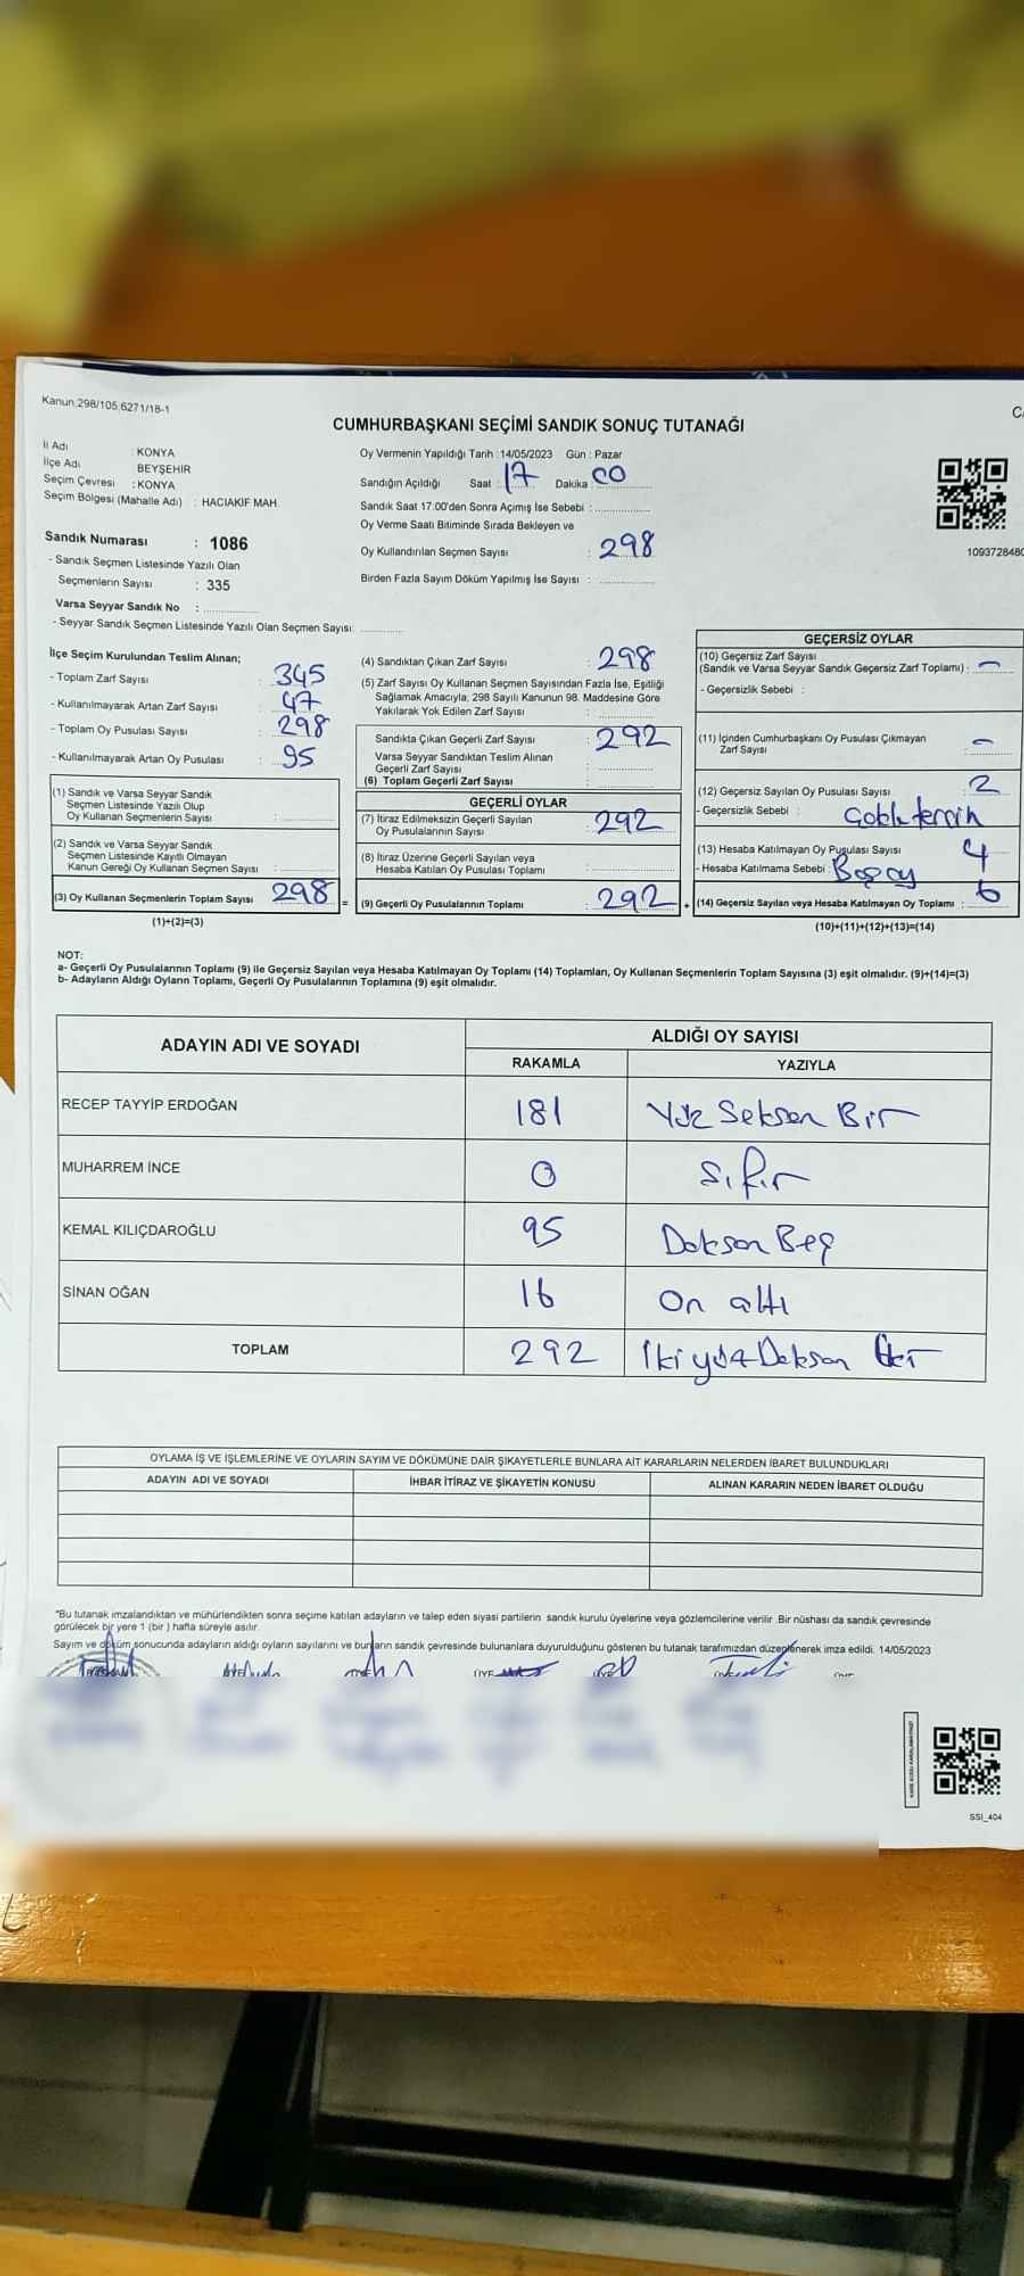 Kanun.298/105,6271/18-1
CUMHURBAŞKANI SEÇİMİ SANDIK SONUÇ TUTANAĞI
İl Adı : KONYA
İlçe Adı BEYŞEHİR
Seçim Çevresi : KONYA
Seçim Bölgesi (Mahalle Adı) : HACIAKİF MAH.
Sandık Numarası : 1086
- Sandık Seçmen Listesinde Yazılı Olan
Seçmenlerin Sayısı : 335
Varsa Seyyar Sandık No :
- Seyyar Sandık Seçmen Listesinde Yazılı Olan Seçmen Sayısı:
Oy Vermenin Yapıldığı Tarih : 14/05/2023 Gün : Pazar
Sandığın Açıldığı Saat : 17 Dakika : 00
Sandık Saat 17:00'den Sonra Açımış İse Sebebi :
Oy Verme Saati Bitiminde Sırada Bekleyen ve
Oy Kullandırılan Seçmen Sayısı : 298
Birden Fazla Sayım Döküm Yapılmış İse Sayısı :
1093728480
İlçe Seçim Kurulundan Teslim Alınan;
- Toplam Zarf Sayısı : 345
- Kullanılmayarak Artan Zarf Sayısı : 47
- Toplam Oy Pusulası Sayısı : 298
- Kullanılmayarak Artan Oy Pusulası : 95
(1) Sandık ve Varsa Seyyar Sandık
Seçmen Listesinde Yazılı Olup
Oy Kullanan Seçmenlerin Sayısı :
(2) Sandık ve Varsa Seyyar Sandık
Seçmen Listesinde Kayıtlı Olmayan
Kanun Gereği Oy Kullanan Seçmen Sayısı :
(3) Oy Kullanan Seçmenlerin Toplam Sayısı 298 =
(1)+(2)=(3)
(4) Sandıktan Çıkan Zarf Sayısı : 298
(5) Zarf Sayısı Oy Kullanan Seçmen Sayısından Fazla İse, Eşitliği
Sağlamak Amacıyla, 298 Sayılı Kanunun 98. Maddesine Göre
Yakılarak Yok Edilen Zarf Sayısı :
Sandıkta Çıkan Geçerli Zarf Sayısı : 292
Varsa Seyyar Sandıktan Teslim Alınan
Geçerli Zarf Sayısı :
(6) Toplam Geçerli Zarf Sayısı :
GEÇERLİ OYLAR
(7) İtiraz Edilmeksizin Geçerli Sayılan
Oy Pusulalarının Sayısı : 292
(8) İtiraz Üzerine Geçerli Sayılan veya
Hesaba Katılan Oy Pusulası Toplamı :
(9) Geçerli Oy Pusulalarının Toplamı : 292 +
GEÇERSİZ OYLAR
(10) Geçersiz Zarf Sayısı
(Sandık ve Varsa Seyyar Sandık Geçersiz Zarf Toplamı) : -
- Geçersizlik Sebebi :
(11) İçinden Cumhurbaşkanı Oy Pusulası Çıkmayan
Zarf Sayısı : -
(12) Geçersiz Sayılan Oy Pusulası Sayısı : 2
- Geçersizlik Sebebi : Çoklu tercih
(13) Hesaba Katılmayan Oy Pusulası Sayısı 4
- Hesaba Katılmama Sebebi : Boş oy
(14) Geçersiz Sayılan veya Hesaba Katılmayan Oy Toplamı : 6
(10)+(11)+(12)+(13)=(14)
NOT:
a- Geçerli Oy Pusulalarının Toplamı (9) ile Geçersiz Sayılan veya Hesaba Katılmayan Oy Toplamı (14) Toplamları, Oy Kullanan Seçmenlerin Toplam Sayısına (3) eşit olmalıdır. (9)+(14)=(3)
b- Adayların Aldığı Oyların Toplamı, Geçerli Oy Pusulalarının Toplamına (9) eşit olmalıdır.
ADAYIN ADI VE SOYADI ALDIĞI OY SAYISI
RAKAMLA YAZIYLA
RECEP TAYYİP ERDOĞAN 181 Yüz Seksen Bir
MUHARREM İNCE 0 Sıfır
KEMAL KILIÇDAROĞLU 95 Doksan Beş
SİNAN OĞAN 16 On altı
TOPLAM 292 İki yüz Doksan İki
OYLAMA İŞ VE İŞLEMLERİNE VE OYLARIN SAYIM VE DÖKÜMÜNE DAİR ŞİKAYETLERLE BUNLARA AİT KARARLARIN NELERDEN İBARET BULUNDUKLARI
ADAYIN ADI VE SOYADI İHBAR İTİRAZ VE ŞİKAYETİN KONUSU ALINAN KARARIN NEDEN İBARET OLDUĞU
"Bu tutanak imzalandıktan ve mühürlendikten sonra seçime katılan adayların ve talep eden siyasi partilerin sandık kurulu üyelerine veya gözlemcilerine verilir. Bir nüshası da sandık çevresinde
görülecek bir yere 1 (bir) hafta süreyle asılır.
Sayım ve döküm sonucunda adayların aldığı oyların sayılarını ve bunların sandık çevresinde bulunanlara duyurulduğunu gösteren bu tutanak tarafımızdan düzenlenerek imza edildi. 14/05/2023
SSI_404